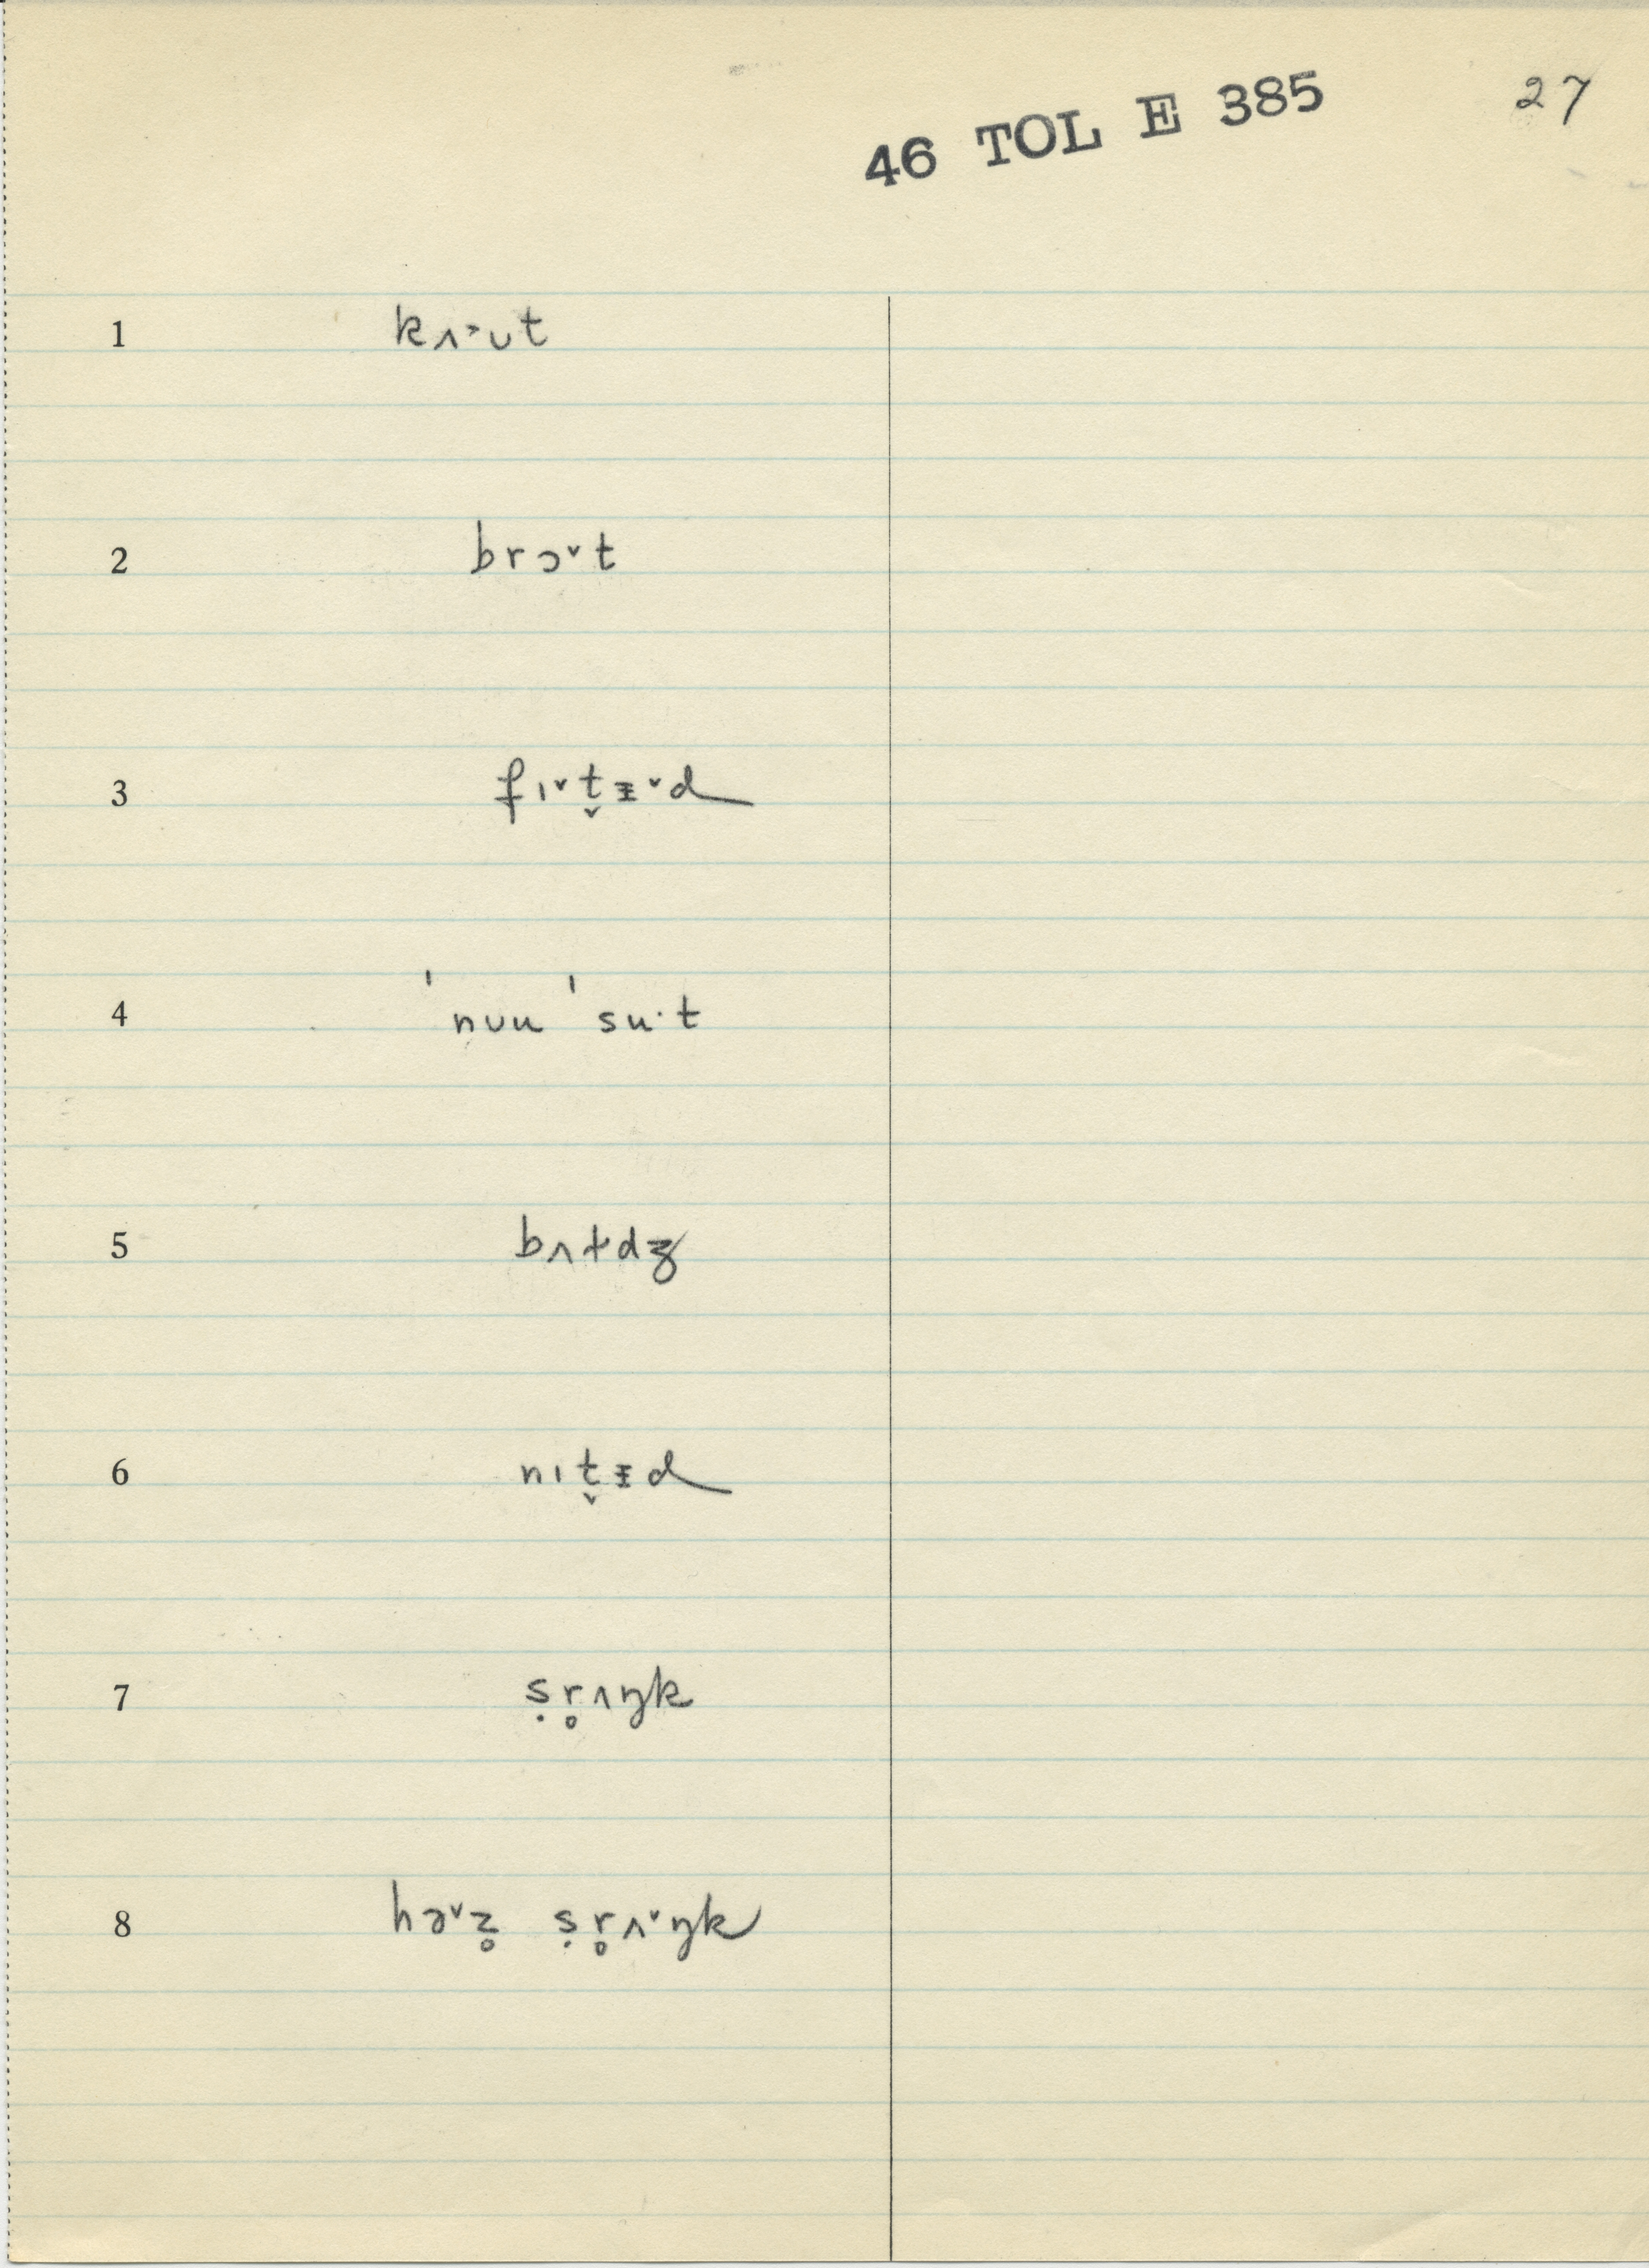 46 TOL E 385 27
1 kʌ˃ʊt
2 brɔ˅t
3 fɪ˅t̬ᵻ˅d
4 ˈnʊu ˈsu·t
5 bʌɫdʒ
6 nɪt̬ᵻd
7 ṣr̥ʌŋk
8 hə˅z̥ ṣr̥ʌ˅ŋk